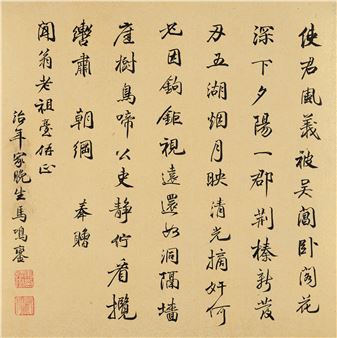 使君風義被吳閶卧閣花
深下夕陽一郡荆榛新發
刃五湖烟月映清光摘奸何
必因鉤鉅視遠還如洞隔墻
庭樹鳥啼公吏靜佇看攬
轡肅 朝綱 奉贈
聞翁老祖臺 正
治年家晚生馬鳴鑾